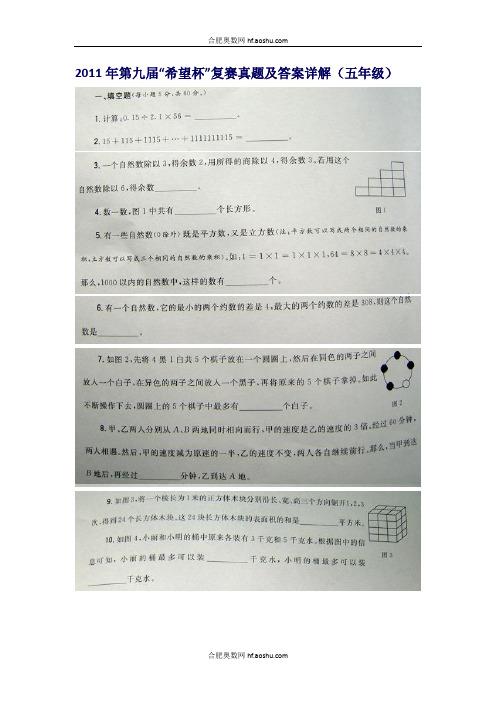 合肥奥数网 hf.aoshu.com
2011 年第九届“希望杯”复赛真题及答案详解（五年级）
一、填空题(每小题5分,共60分。)
1.计算:0.15÷2.1×56=________。
2.15+115+1115+…+1111111115=________。
3.一个自然数除以3,得余数2,用所得的商除以4,得余数3。若用这个
自然数除以6,得余数________。
4.数一数,图1中共有________个长方形。
图1
5.有一些自然数(0除外)既是平方数,又是立方数(注:平方数可以写成两个相同的自然数的乘
积,立方数可以写成三个相同的自然数的乘积)。如:1=1×1=1×1×1,64=8×8=4×4×4。
那么,1000以内的自然数中,这样的数有________个。
6.有一个自然数,它的最小的两个约数的差是4,最大的两个约数的差是308,则这个自然
数是________。
7.如图2,先将4黑1白共5个棋子放在一个圆圈上,然后在同色的两子之间
放入一个白子,在异色的两子之间放入一个黑子,再将原来的5个棋子拿掉。如此
不断操作下去,圆圈上的5个棋子中最多有________个白子。
图2
8.甲、乙两人分别从A、B两地同时相向而行,甲的速度是乙的速度的3倍,经过60分钟,
两人相遇。然后,甲的速度减为原速的一半,乙的速度不变,两人各自继续前行。那么,当甲到达
B地后,再经过________分钟,乙到达A地。
9.如图3,将一个棱长为1米的正方体木块分别沿长、宽、高三个方向锯开1,2,3
次,得到24个长方体木块。这24块长方体木块的表面积的和是________平方米。
10.如图4,小丽和小明的桶中原来各装有3千克和5千克水。根据图中的信
息可知,小丽的桶最多可以装________千克水,小明的桶最多可以装
________千克水。
图3
合肥奥数网 hf.aoshu.com